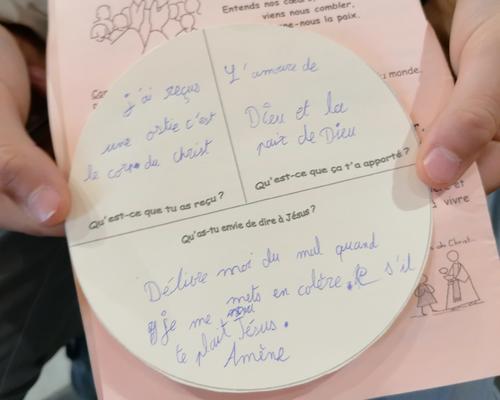 Entends nos cœurs
viens nous combler,
nous la paix.
du monde.
j'ai reçus
une ostie c'est
le corp du christ
Qu'est-ce que tu as reçu ?
L'amoure de
Dieu et la
paix de Dieu
Qu'est-ce que ça t'a apporté ?
Qu'as-tu envie de dire à Jésus ?
Délivre moi du mal quand
je me mets en colère. s'il
te plait Jésus.
Amène
et
vivre
du Christ